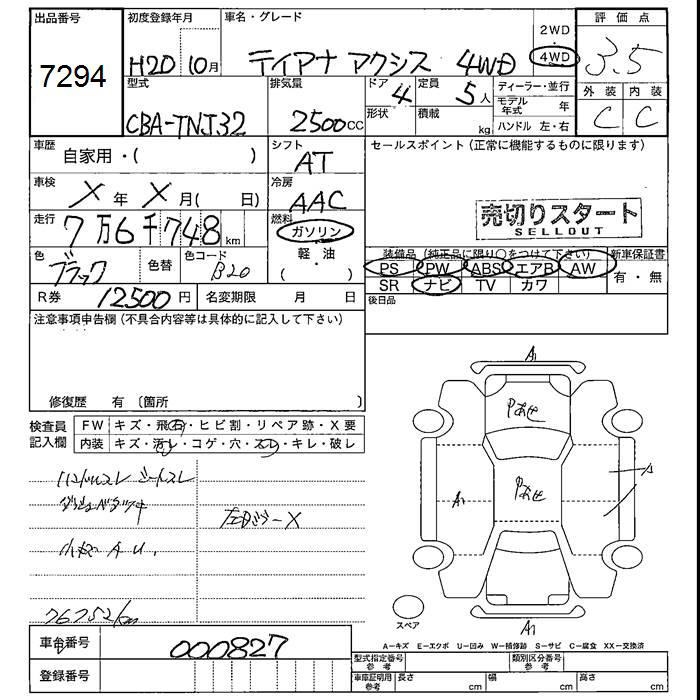 出品番号 初度登録年月 車名・グレード 2WD 評価点
7294 H20 10月 ティアナ アクシス 4WD ・ 4WD 3.5
型式 排気量 ドア 定員 ディーラー・並行 外装 内装
CBA-TNJ32 2500cc 4 5人 モデル年式 年 C C
形状 積載 kg ハンドル 左・右
車歴 自家用・( ) シフト AT セールスポイント(正常に機能するものに限ります)
車検 X 年 X 月( 日) 冷房 AAC
売切りスタート
SELLOUT
走行 7万6千748km 燃料 ガソリン
軽・油
( )
色 ブラック 色替 色コード B20
装備品(純正品に限り○をつけて下さい) 新車保証書
PS PW ABS エアB AW 有・無
SR ナビ TV カワ
R券 12500円 名変期限 月 日 後日品
注意事項申告欄(不具合内容等は具体的に記入して下さい)
修復歴 有 〔箇所 〕
検査員記入欄 FW キズ・飛石・ヒビ割・リペア跡・X要
内装 キズ・汚レ・コゲ・穴・スレ・キレ・破レ
ハンドルスレ シートスレ
小キズ A U.
76752km
A1
A1
A
A1
スペア
A-キズ E-エクボ U-凹み W-補修跡 S-サビ C-腐食 XX-交換済
車台番号 000827
型式指定番号 参考 類別区分番号 参考
登録番号
車庫証明用 参考 長さ cm 幅 cm 高さ cm